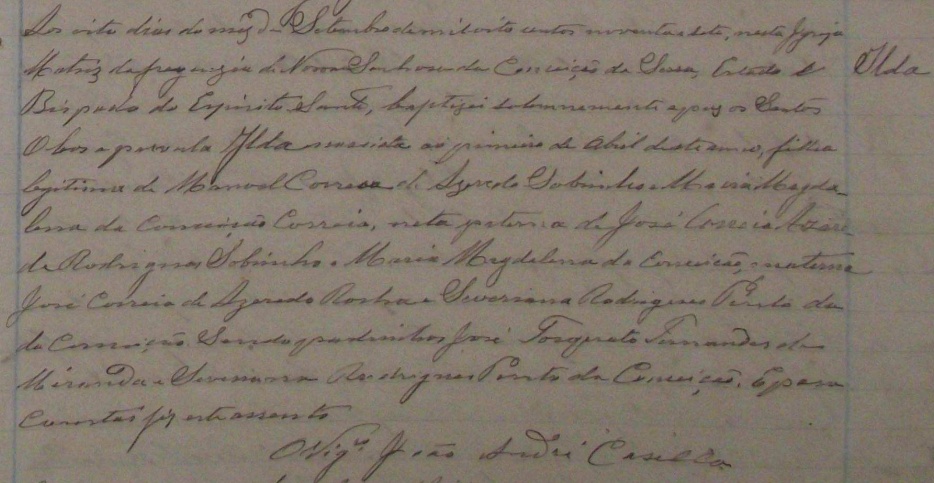 Aos oito dias do mêz de Setembro de mil oito centos noventa e sete, nesta Igreja
Matriz da freguezia de Nossa Senhora da Conceição da Serra, Estado e
Ilda
Bispado do Espirito Santo, baptizei solemnemente e puz os Santos
Oleos a parvula Ilda nascida ao primeiro de Abril deste anno, filha
legitima de Manoel Correia de Azeredo Sobrinho e Maria Magda-
lena da Conceição Correia, neta paterna de José Correia
de Rodrigues Sobrinho e Maria Magdelena da Conceição, materna
José Correia de Azeredo Rocha e Severiana Rodrigues Pinto da
da Conceição. Serão padrinhos José Torquato Fernandes de
Miranda e Severianna Rodrigues Pinto da Conceição. E para
constar fiz este assento
O Vigrº João André Casella